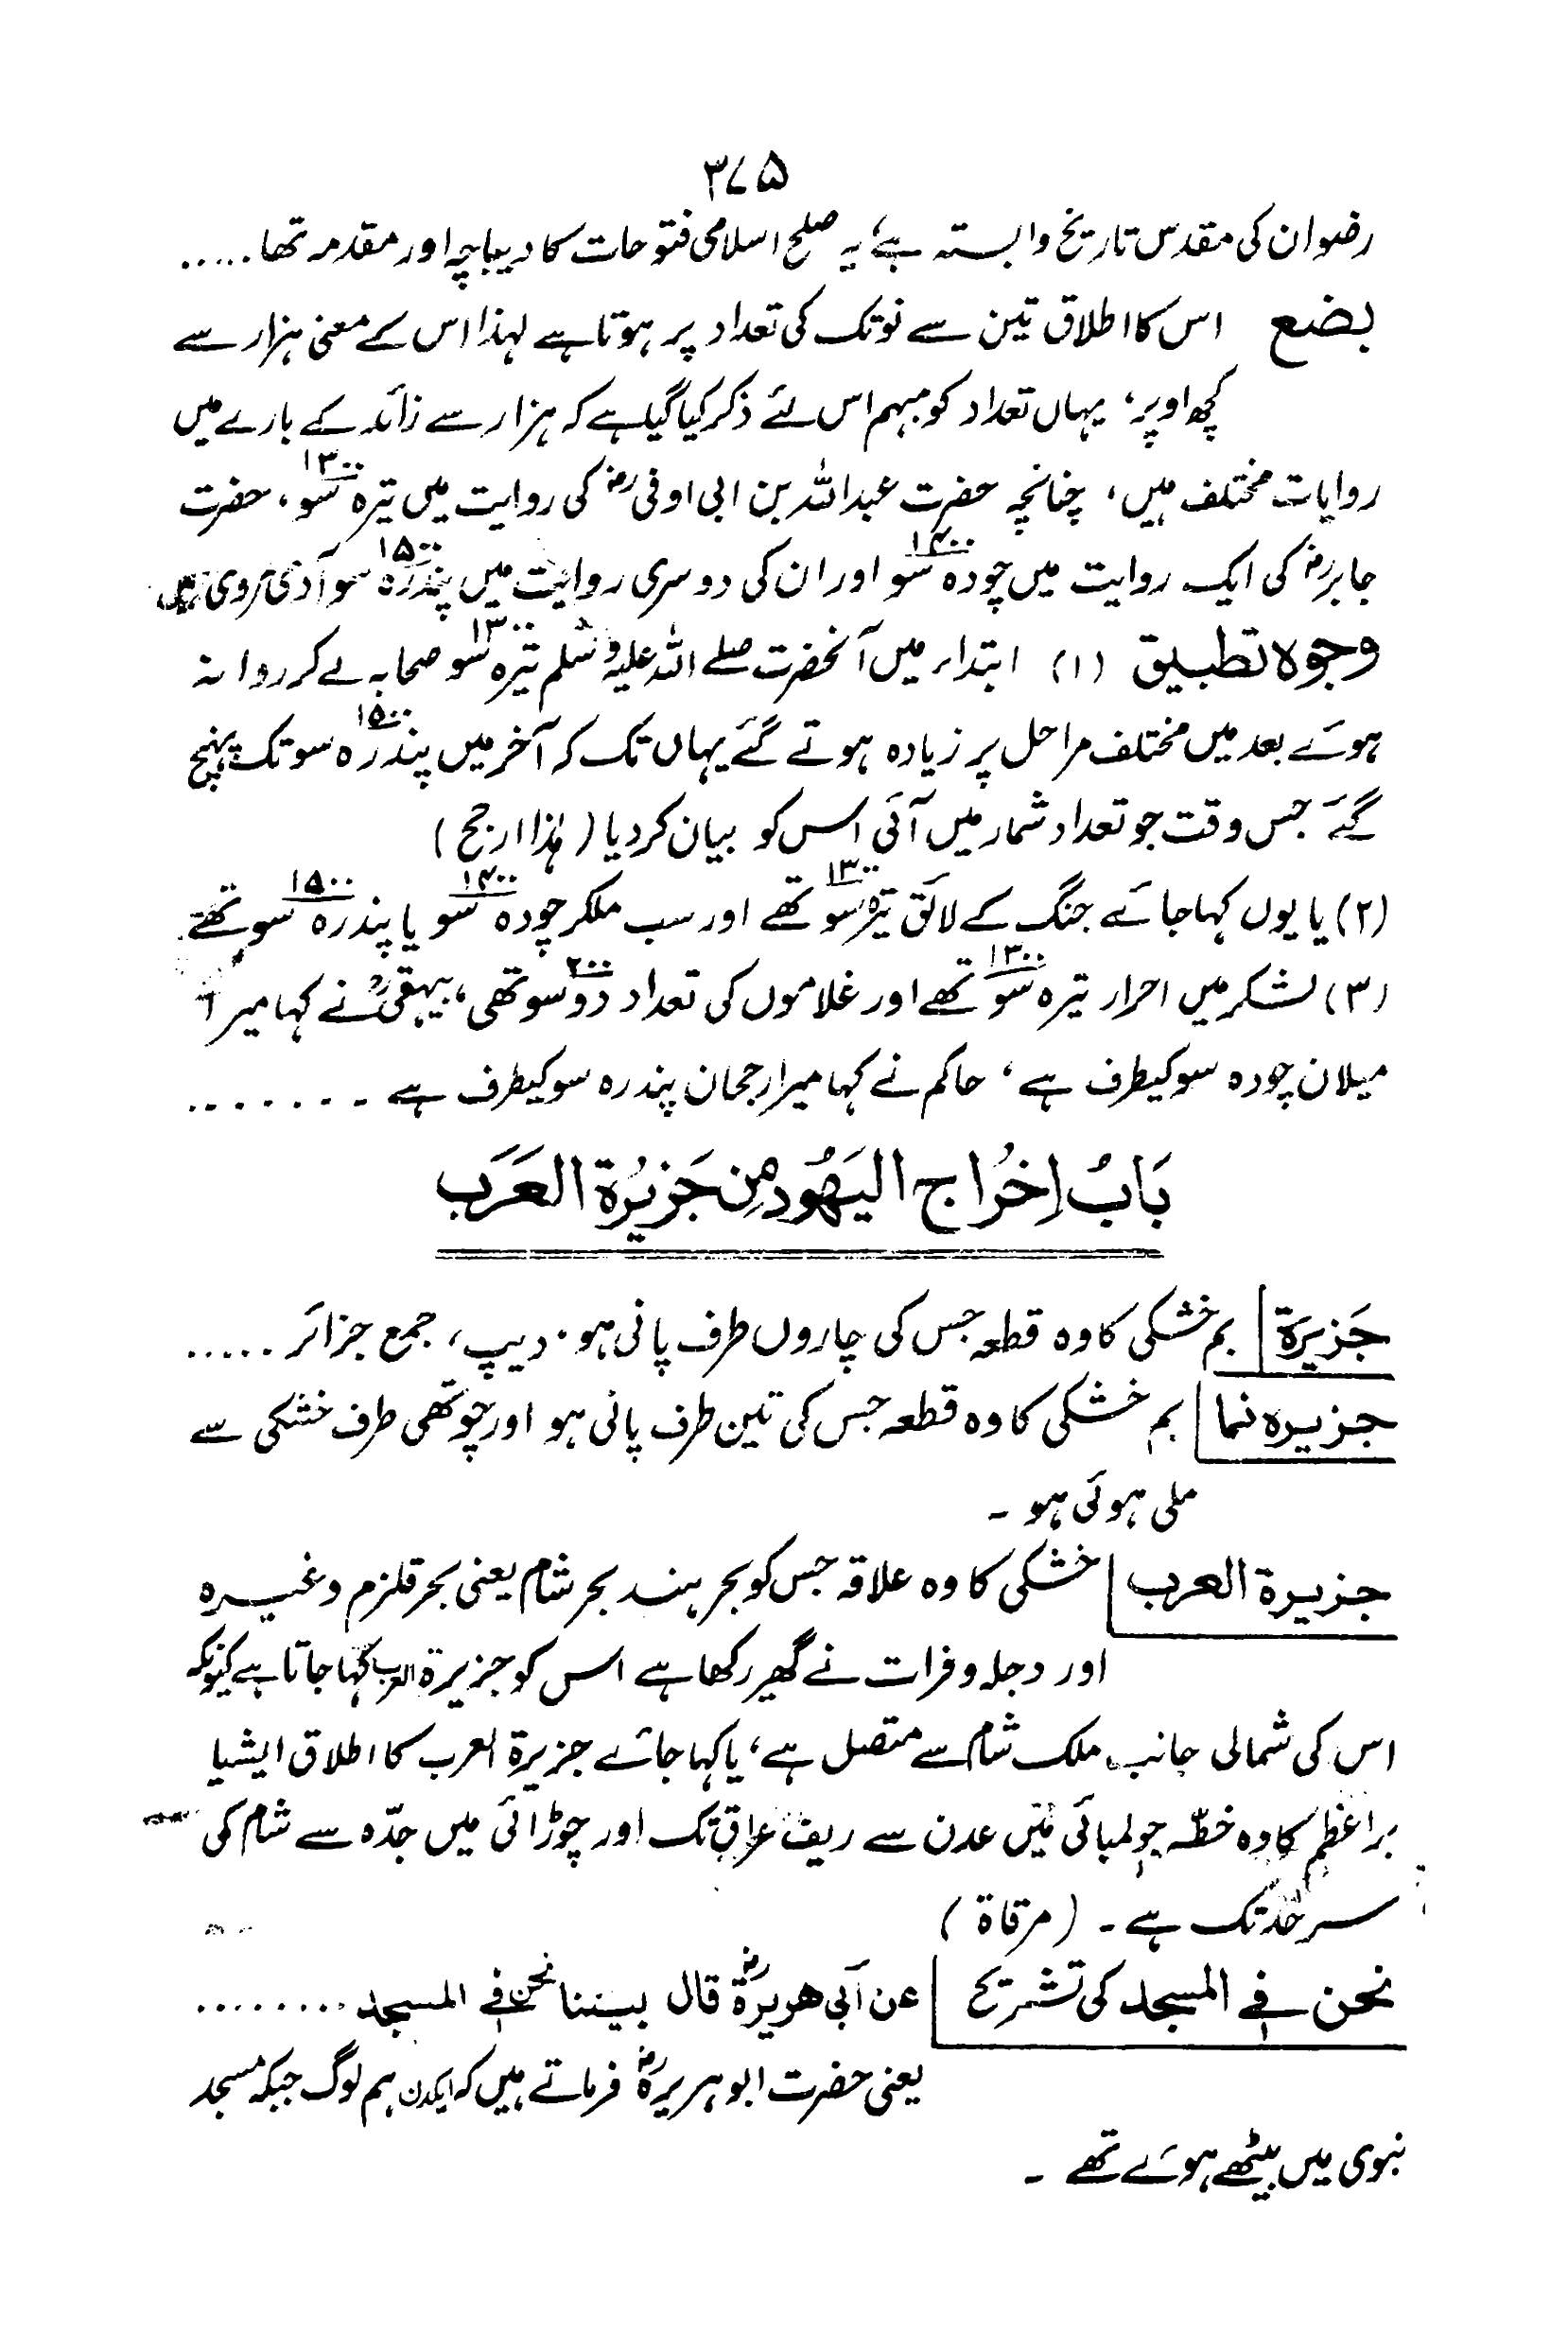 ۳۷۵
رضوان کی مقدس تاریخ وابستہ ہے، یہ صلح اسلامی فتوحات کا دیباچہ اور مقدمہ تھا .....
بضع اس کا اطلاق تین سے نو تک کی تعداد پر ہوتا ہے لہذا اس کے معنی ہزار سے
کچھ اوپر، یہاں تعداد کو مبہم اس لئے ذکر کیا گیا ہے کہ ہزار سے زائد کے بارے میں
روایات مختلف ہیں، چنانچہ حضرت عبداللہ بن ابی اوفیؓ کی روایت میں تیرہ سو ۱۳۰۰، حضرت
جابرؓ کی ایک روایت میں چودہ سو ۱۴۰۰ اور ان کی دوسری روایت میں پندرہ سو ۱۵۰۰ آدمی مروی ہیں
وجوہ تطبیق (۱) ابتداء میں آنحضرت صلے اللہ علیہ وسلم تیرہ سو ۱۳۰۰ صحابہ لے کر روانہ
ہوئے بعد میں مختلف مراحل پر زیادہ ہوتے گئے یہاں تک کہ آخر میں پندرہ سو ۱۵۰۰ تک پہنچ
گئے جس وقت جو تعداد شمار میں آئی اس کو بیان کر دیا (ہٰذا ارجح)
(۲) یا یوں کہا جائے جنگ کے لائق تیرہ سو ۱۳۰۰ تھے اور سب ملکر چودہ سو ۱۴۰۰ یا پندرہ سو ۱۵۰۰ تھے
(۳) لشکر میں احرار تیرہ سو ۱۳۰۰ تھے اور غلاموں کی تعداد دو سو ۲۰۰ تھی، بیہقیؒ نے کہا میرا
میلان چودہ سو کیطرف ہے، حاکم نے کہا میرا رجحان پندرہ سو کیطرف ہے .......
بَابُ اِخْرَاجِ الیَهُودِ مِن جَزِیْرَۃِ العَرَب
جَزِیرَة بم خشکی کا وہ قطعہ جس کی چاروں طرف پانی ہو۔ دیپ، جمع جزائر .....
جزیرہ نما بم خشکی کا وہ قطعہ جس کی تین طرف پانی ہو اور چوتھی طرف خشکی سے
ملی ہوئی ہو ۔
جزیرة العرب خشکی کا وہ علاقہ جس کو بحر ہند بحر شام یعنی بحر قلزم وغیرہ
اور دجلہ و فرات نے گھیر رکھا ہے اس کو جزیرة العرب کہا جاتا ہے کیونکہ
اس کی شمالی جانب ملک شام سے متصل ہے، یا کہا جائے جزیرة العرب کا اطلاق ایشیا
براعظم کا وہ خطّہ جو لمبائی میں عدن سے ریف عراق تک اور چوڑائی میں جدّہ سے شام کی
سرحد تک ہے ۔ (مرقاة)
نحن فی المسجد کی تشریح عن أبی هریرةؓ قال بیننا نحن فی المسجد ........
یعنی حضرت ابو ہریرہؓ فرماتے ہیں کہ ایکدن ہم لوگ جبکہ مسجد
نبوی میں بیٹھے ہوئے تھے ۔